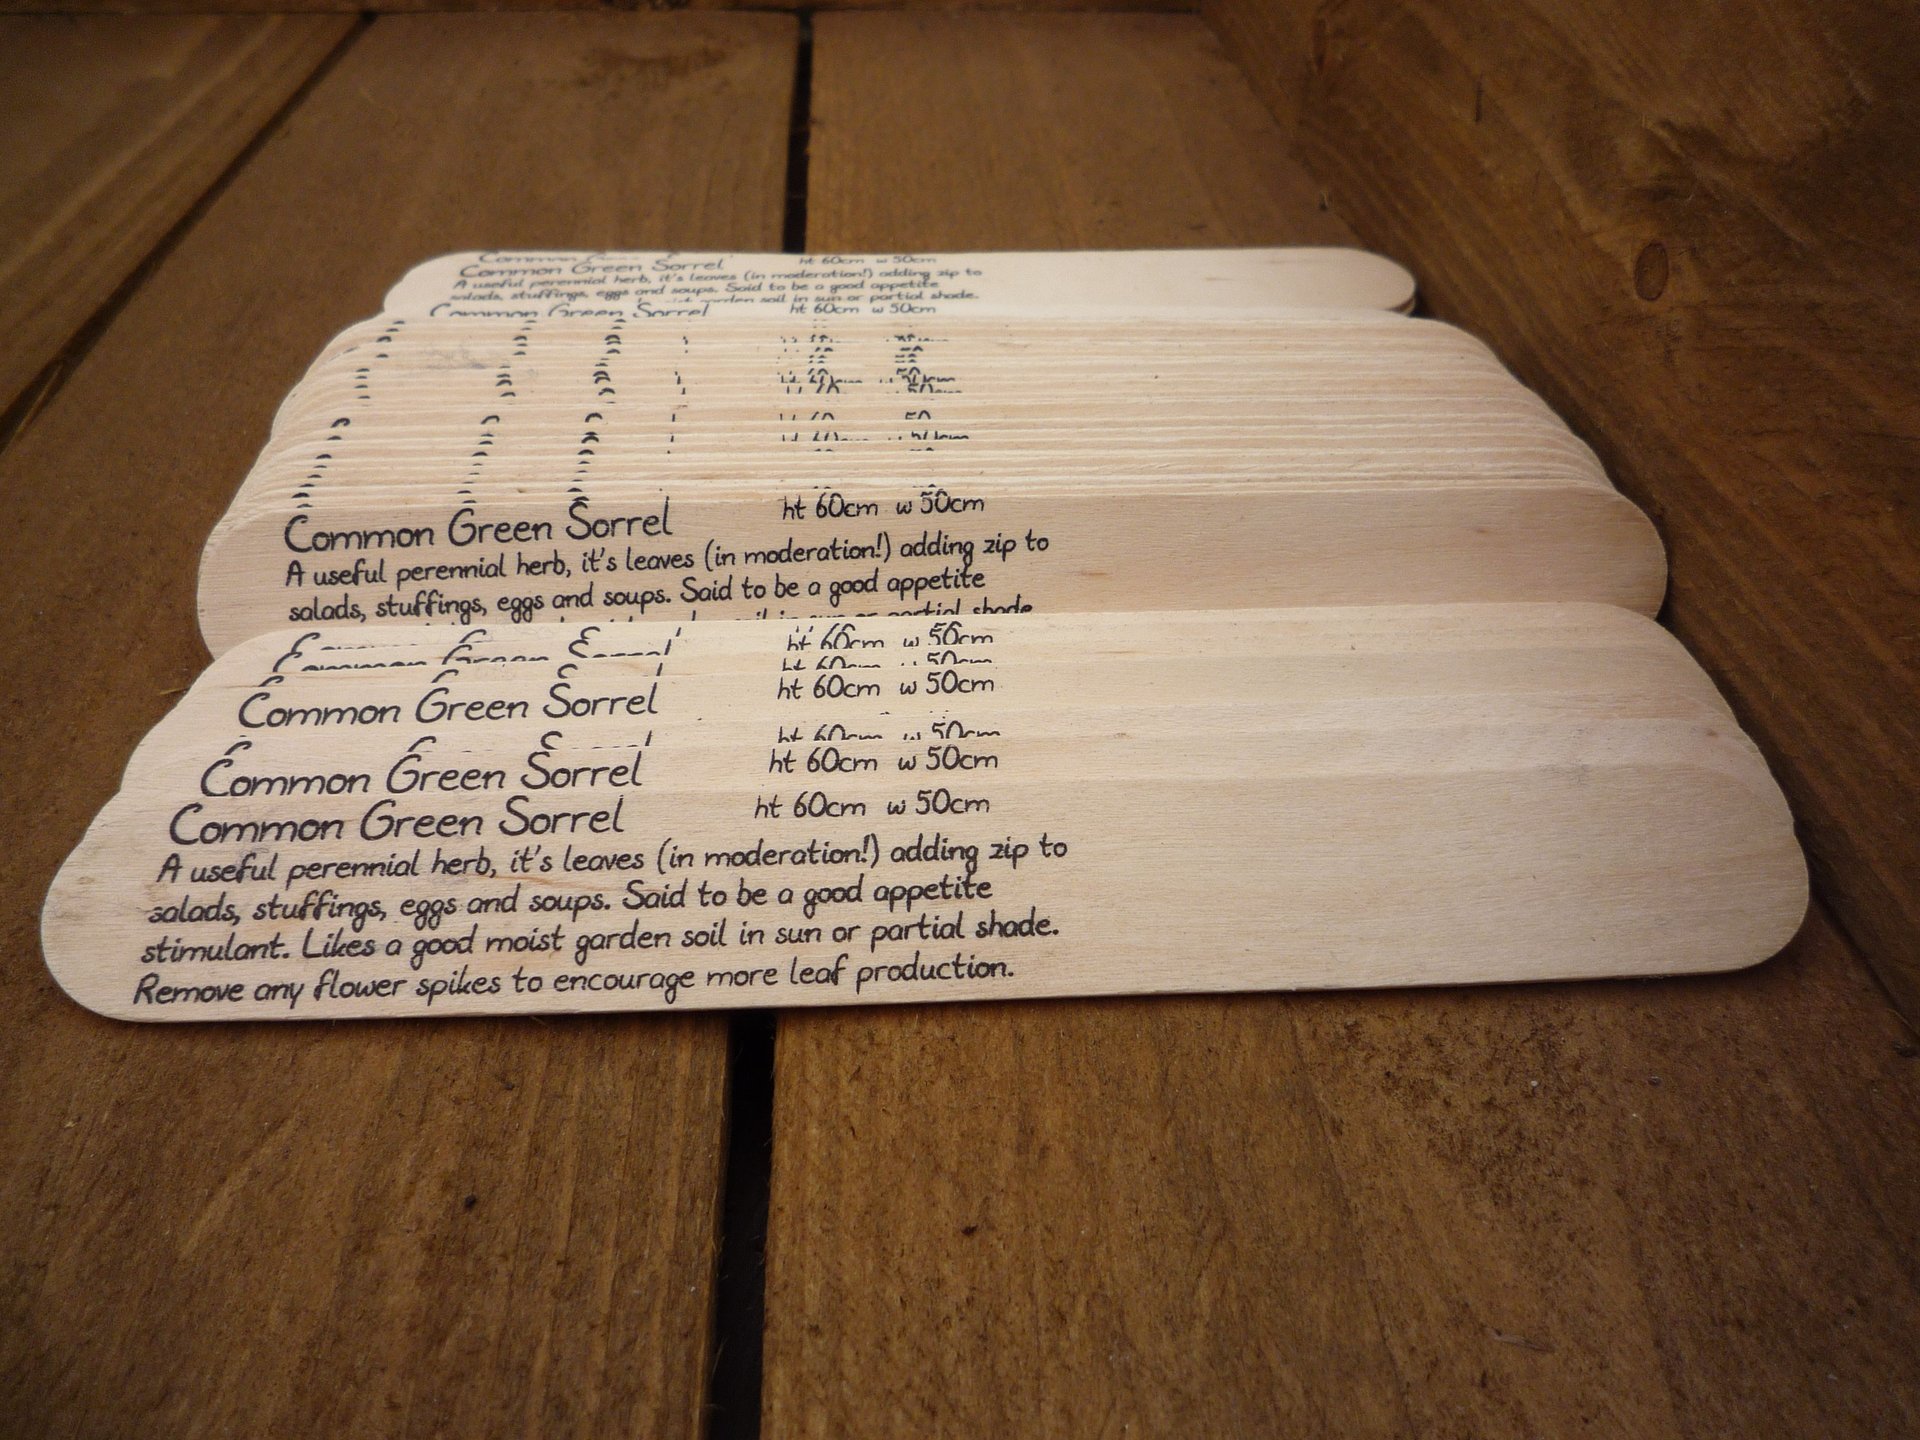 Common Green Sorrel ht 60cm w 50cm
A useful perennial herb, it's leaves (in moderation!) adding zip to
salads, stuffings, eggs and soups. Said to be a good appetite
salads, stuffings, eggs and soups. Said to be a good appetite
partial shade.
Common Green Sorrel ht 60cm w 50cm
Common Green Sorrel ht 60cm w 50cm
A useful perennial herb, it's leaves (in moderation!) adding zip to
salads, stuffings, eggs and soups. Said to be a good appetite
ht 60cm w 50cm
Common Green Sorrel ht 60cm w 50cm
Common Green Sorrel ht 60cm w 50cm
Common Green Sorrel ht 60cm w 50cm
A useful perennial herb, it's leaves (in moderation!) adding zip to
salads, stuffings, eggs and soups. Said to be a good appetite
stimulant. Likes a good moist garden soil in sun or partial shade.
Remove any flower spikes to encourage more leaf production.